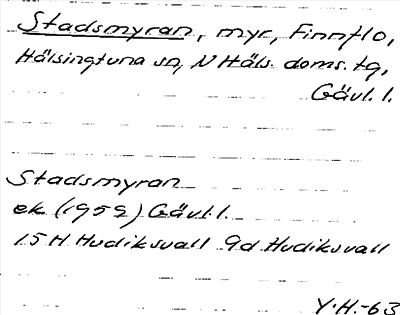 Stadsmyran, myr, Finnflo,
Hälsingtuna sn, N Häls. doms. tg,
Gävl. l.
Stadsmyran
ek (1959) Gävl. l.
15 H Hudiksvall 9d Hudiksvall
Y.H.-63